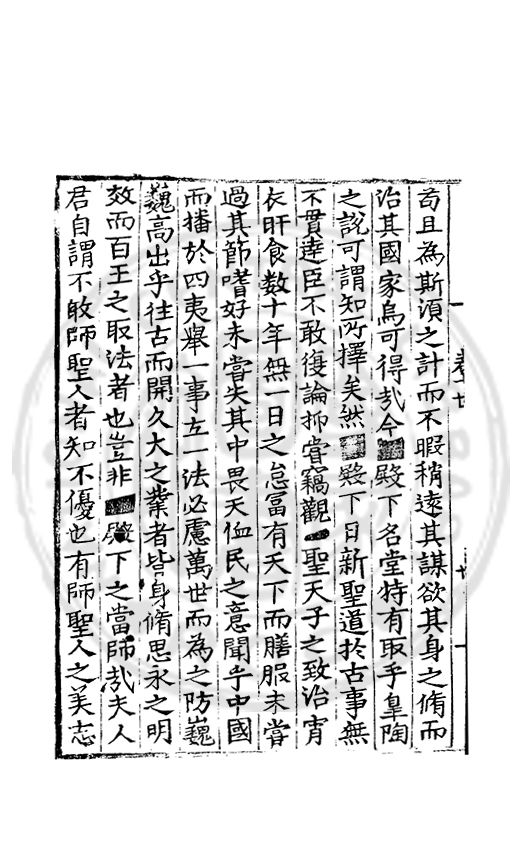 苟且為斯湏之計而不暇稍遠其謀欲其身之脩而
治其國家烏可得㢤今殿下名堂特有取乎臯陶
之說可謂知所擇矣然殿下日新聖道扵古事無
不貫達臣不敢復論抑甞竊觀聖天子之致治宵
衣旰食数十年無一日之怠冨有天下而膳服未甞
過其節嗜好未甞失其中畏天恤民之意聞乎中國
而播於四夷舉一事立一法必慮萬世而為之防巍
巍高出乎往古而開久大之業者皆身脩思永之明
效而百王之取法者也豈非殿下之當師㢤夫人
君自謂不敢師聖人者知不優也有師聖人之美志